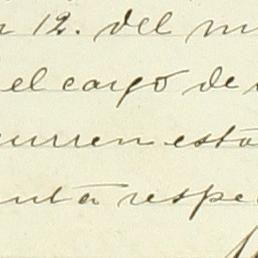 12. del m
el cargo de
curren esta
nta respe